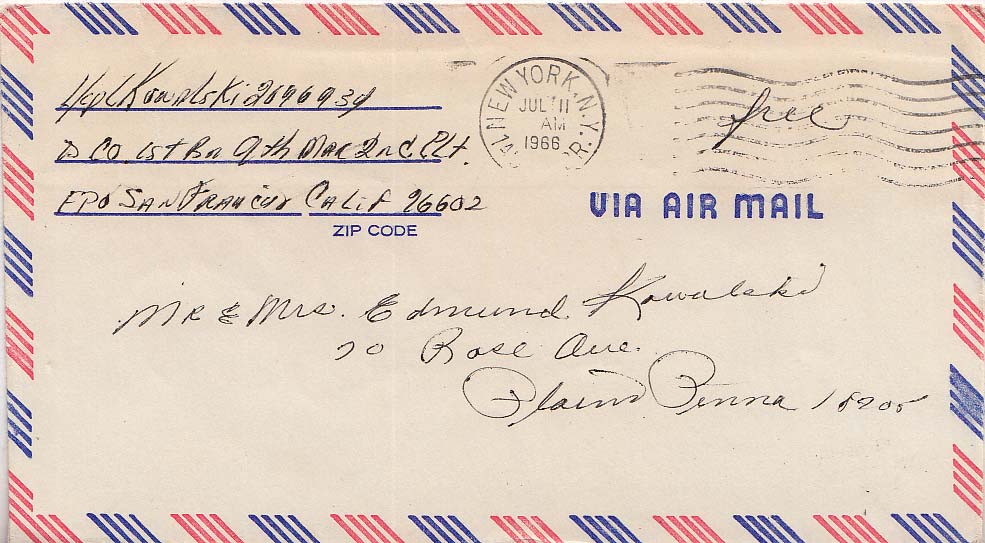 Kowalski 2096939
D CO. 1st Bn 9th Mar 2nd. Plt.
FPO San Francisco Calif 26602
ZIP CODE
NEW YORK, N.Y.
JUL 11
AM
1966
free
VIA AIR MAIL
Mr & Mrs. Edmund Kowalski
70 Rose Ave.
Plains Penna 18705